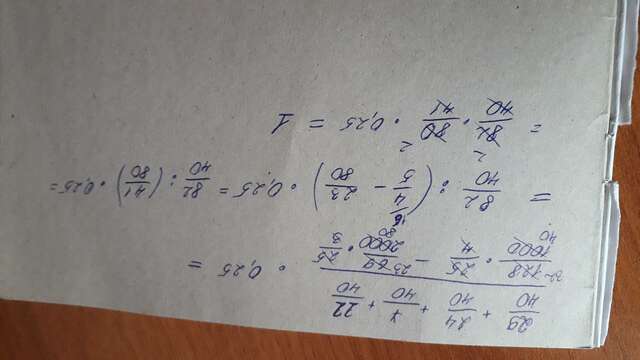 29/40 + 24/40 + 7/40 + 22/40
128/1000 · 25/4 − 69/2000 · 25/3 · 0,25 =
= 82/40 : (4/5 − 23/80) · 0,25 = 82/40 : (41/80) · 0,25 =
= 82/40 · 80/41 · 0,25 = 1